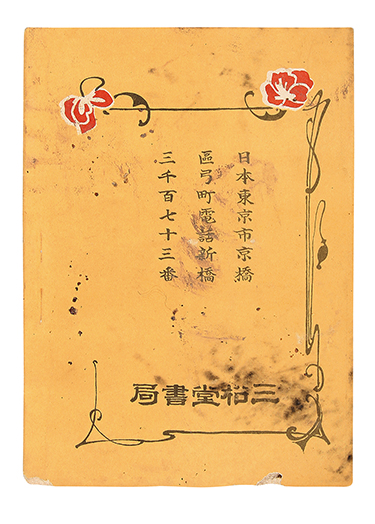 日本東京市京橋
區弓町電話新橋
三千百七十三番
三松堂書局